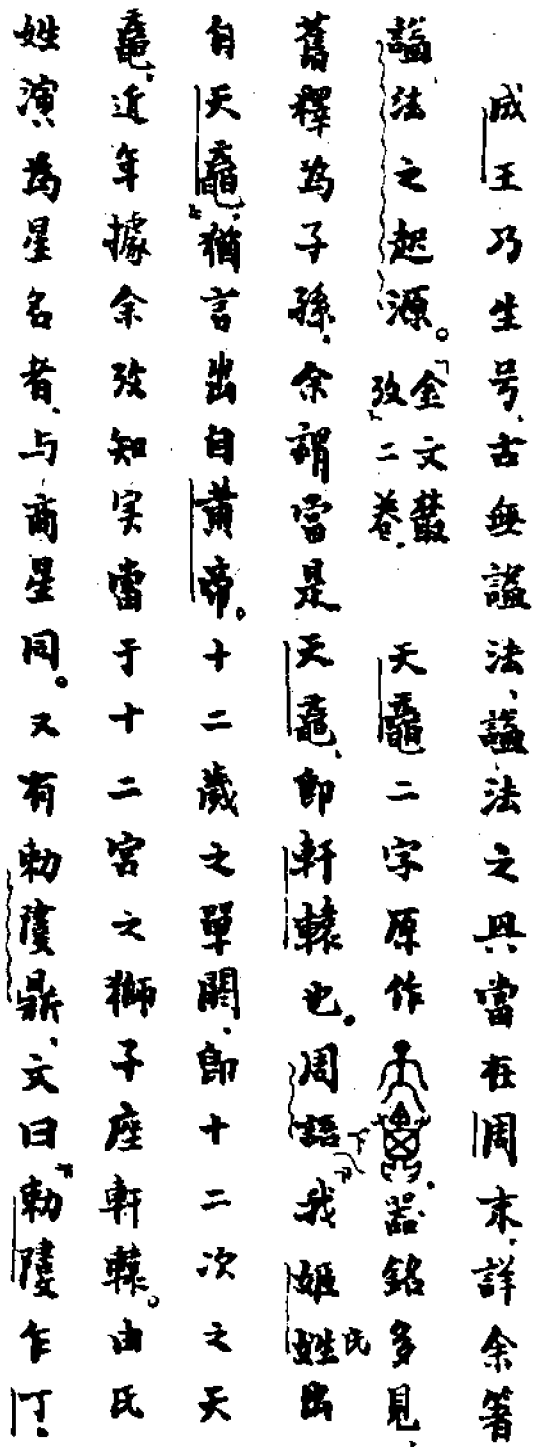 成王乃生号、古無謚法、謚法之興當在周末、詳余箸
謚法之起源。「金文叢攷」二卷. 天黿二字原作 . 器銘多見、
舊釋為子孫、余謂當是天黿、即軒轅也. 周語下「我姬氏出
自天黿」、猶言出自黃帝。十二歲之單閼、即十二次之天
黿、近年據余攷知实當于十二宮之獅子座軒轅。由氏
姓演為星名者、与商星同。又有勅䧢鼎、文曰「勅䧢乍丁.